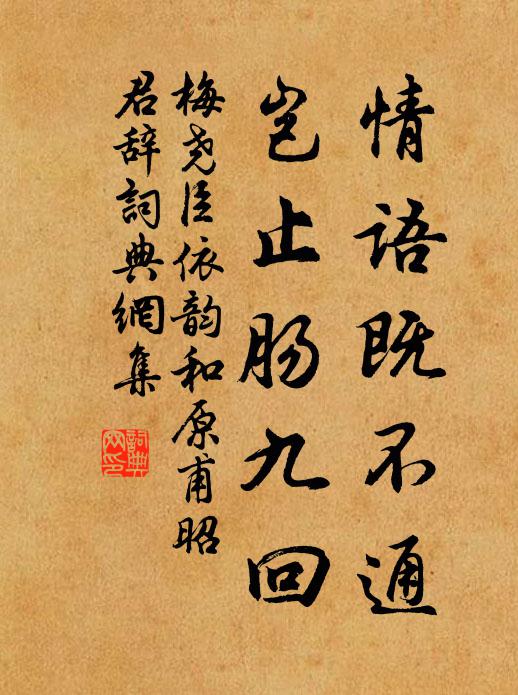 情语既不通
岂止肠九回
梅尧臣依韵和原甫昭
君辞詞典網集
詞典
网印